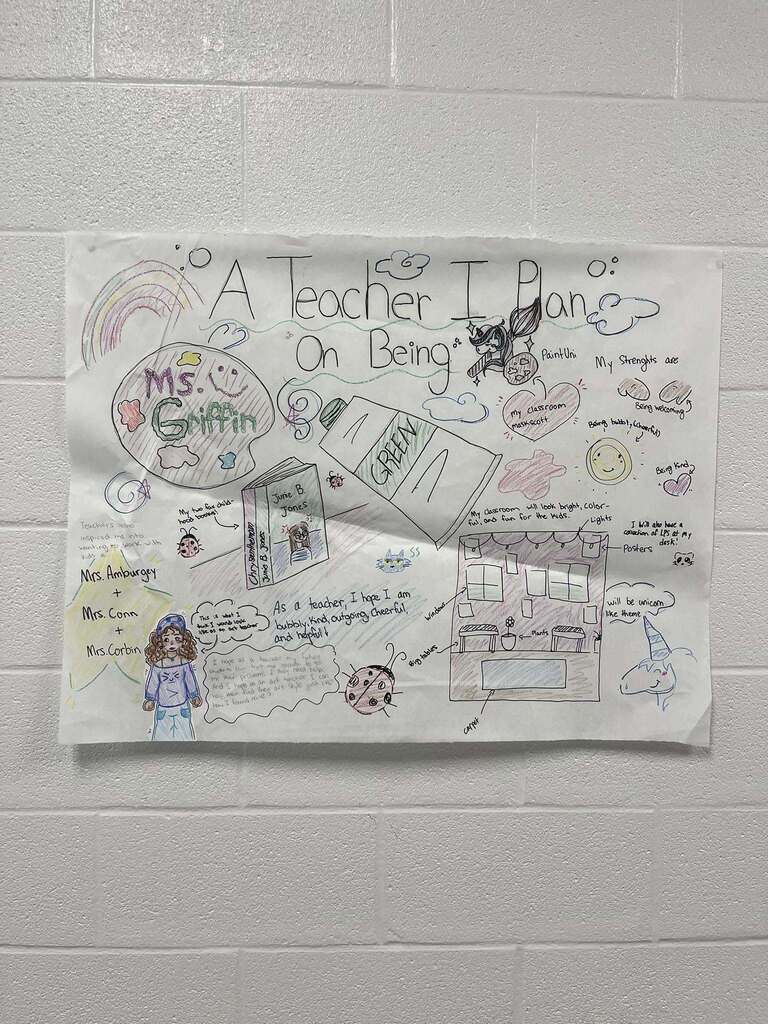 A Teacher I Plan
On Being
Ms.
Griffin
PaintUni
My Strenghts are
Being welcoming
My classroom
Being bubbly, (cheerful)
Being kind
GREEN
My classroom will look bright, color-
ful, and fun for the kids.
Lights
I will also have a
collection of LPS at my
desk!
Posters
Windows
Plants
will be unicorn
like theme
My two fav child-
hood books!
Junie B.
Jones
Chrysanthemum
Junie B. Jones
SS
Teachers who
inspired me into
wanting to work with
kids
Mrs. Amburgey
+
Mrs. Conn
+
Mrs. Corbin
This is what I
think I would look
like as an art teacher
As a teacher, I hope I am
bubbly, Kind, outgoing, Cheerful,
and helpful!
I hope as a teacher in future